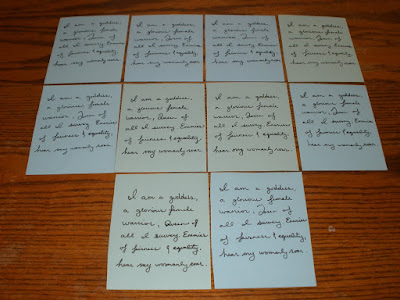 I am a goddess,
a glorious female
warrior, Queen of
all I survey. Enemies
of fairness & equality,
hear my womanly roar.
I am a goddess,
a glorious female
warrior, Queen of
all I survey. Enemies
of fairness & equality,
hear my womanly roar.
I am a goddess,
a glorious female
warrior, Queen of
all I survey. Enemies
of fairness & equality,
hear my womanly roar.
I am a goddess,
a glorious female
warrior, Queen of
all I survey. Enemies
of fairness & equality,
hear my womanly roar.
I am a goddess,
a glorious female
warrior, Queen of
all I survey. Enemies
of fairness & equality,
hear my womanly roar.
I am a goddess,
a glorious female
warrior, Queen of
all I survey. Enemies
of fairness & equality,
hear my womanly roar.
I am a goddess,
a glorious female
warrior, Queen of
all I survey. Enemies
of fairness & equality,
hear my womanly roar.
I am a goddess,
a glorious female
warrior, Queen of
all I survey. Enemies
of fairness & equality,
hear my womanly roar.
I am a goddess,
a glorious female
warrior, Queen of
all I survey. Enemies
of fairness & equality,
hear my womanly roar.
I am a goddess,
a glorious female
warrior, Queen of
all I survey. Enemies
of fairness & equality,
hear my womanly roar.